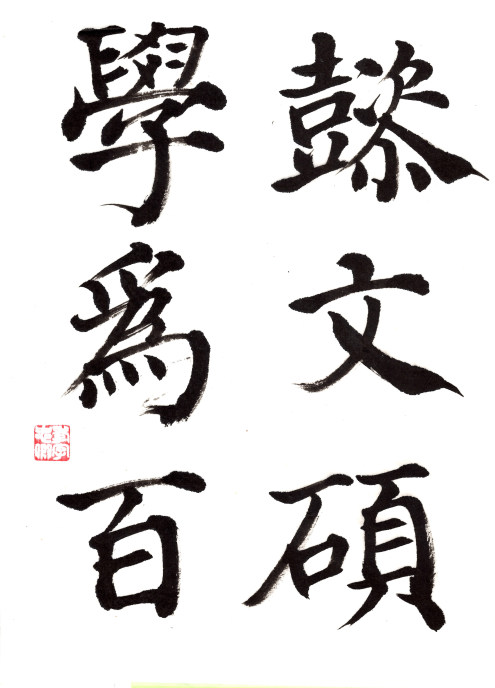 懿文碩
學爲百